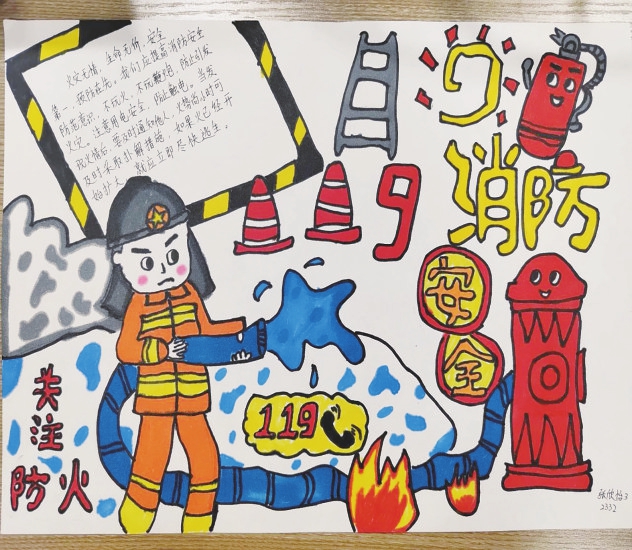 火灾无情，生命无价，安全
第一，预防在先，我们应提高消防安全
防范意识，不玩火，不玩鞭炮，防止引发
火灾。注意用电安全，防止触电。当发
现火情后，要及时通知他人，火势尚小时可
及时采取扑解措施，如果火已经开
始扩大，就应立即尽快逃生。
消防
安
全
9
119
关
注
防火
张欣怡3
2332